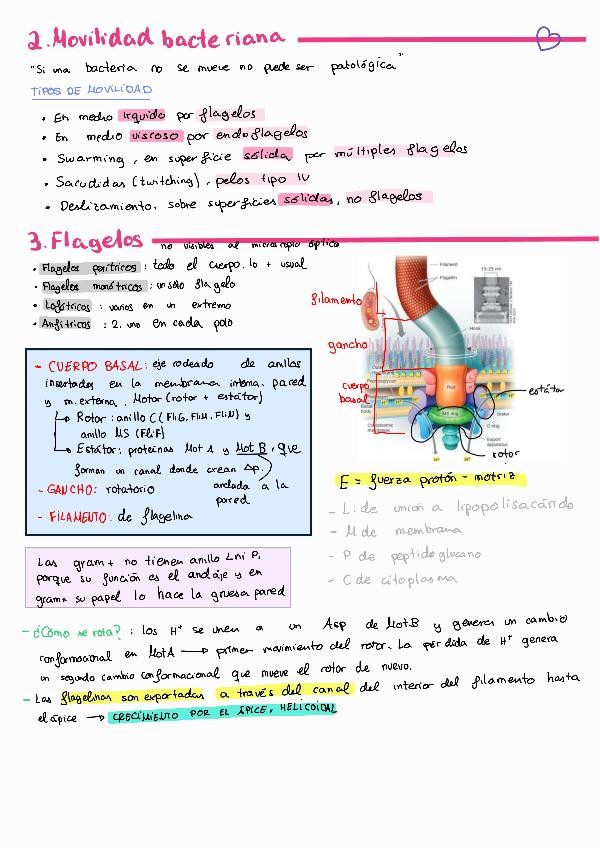 2. Movilidad bacteriana
"Si una bacteria no se mueve no puede ser patológica"
TIPOS DE MOVILIDAD
• En medio líquido por flagelos
• En medio viscoso por endoflagelos
• Swarming, en superficie sólida por múltiples flagelos
• Sacudidas (twitching), pelos tipo IV
• Deslizamiento, sobre superficies sólidas, no flagelos
3. Flagelos no visibles al microscopio óptico
• Flagelos perítricos: todo el cuerpo, lo + usual
• Flagelos monótricos: un sólo flagelo
• Lofótricos: varios en un extremo
• Anfítricos: 2, uno en cada polo
- CUERPO BASAL: eje rodeado de anillos
insertados en la membrana interna, pared
y m. externa. Motor (rotor + estátor)
→ Rotor: anillo C (FliG, FliM, FliN) y
anillo MS (FliF)
→ Estátor: proteínas Mot A y Mot B, que
forman un canal donde crean Δp.
anclada a la
pared
- GANCHO: rotatorio
- FILAMENTO: de flagelina
filamento
gancho
cuerpo
basal
Filament
Flagellin
15-25 nm
Hook
Peptidoglycan
Rod
MS ring
Stator
C ring
Export
apparatus
estátor
rotor
E = fuerza protón-motriz
- L: de unión a lipopolisacárido
- M de membrana
- P de peptidoglucano
- C de citoplasma
Las gram+ no tienen anillo L ni P,
porque su función es el anclaje y en
gram+ su papel lo hace la gruesa pared
- ¿Cómo se rota?: los H⁺ se unen a un Asp de MotB y generan un cambio
conformacional en MotA → primer movimiento del rotor. La pérdida de H⁺ genera
un segundo cambio conformacional que mueve el rotor de nuevo.
- Las flagelinas son exportadas a través del canal del interior del filamento hasta
el ápice → CRECIMIENTO POR EL ÁPICE, HELICOIDAL